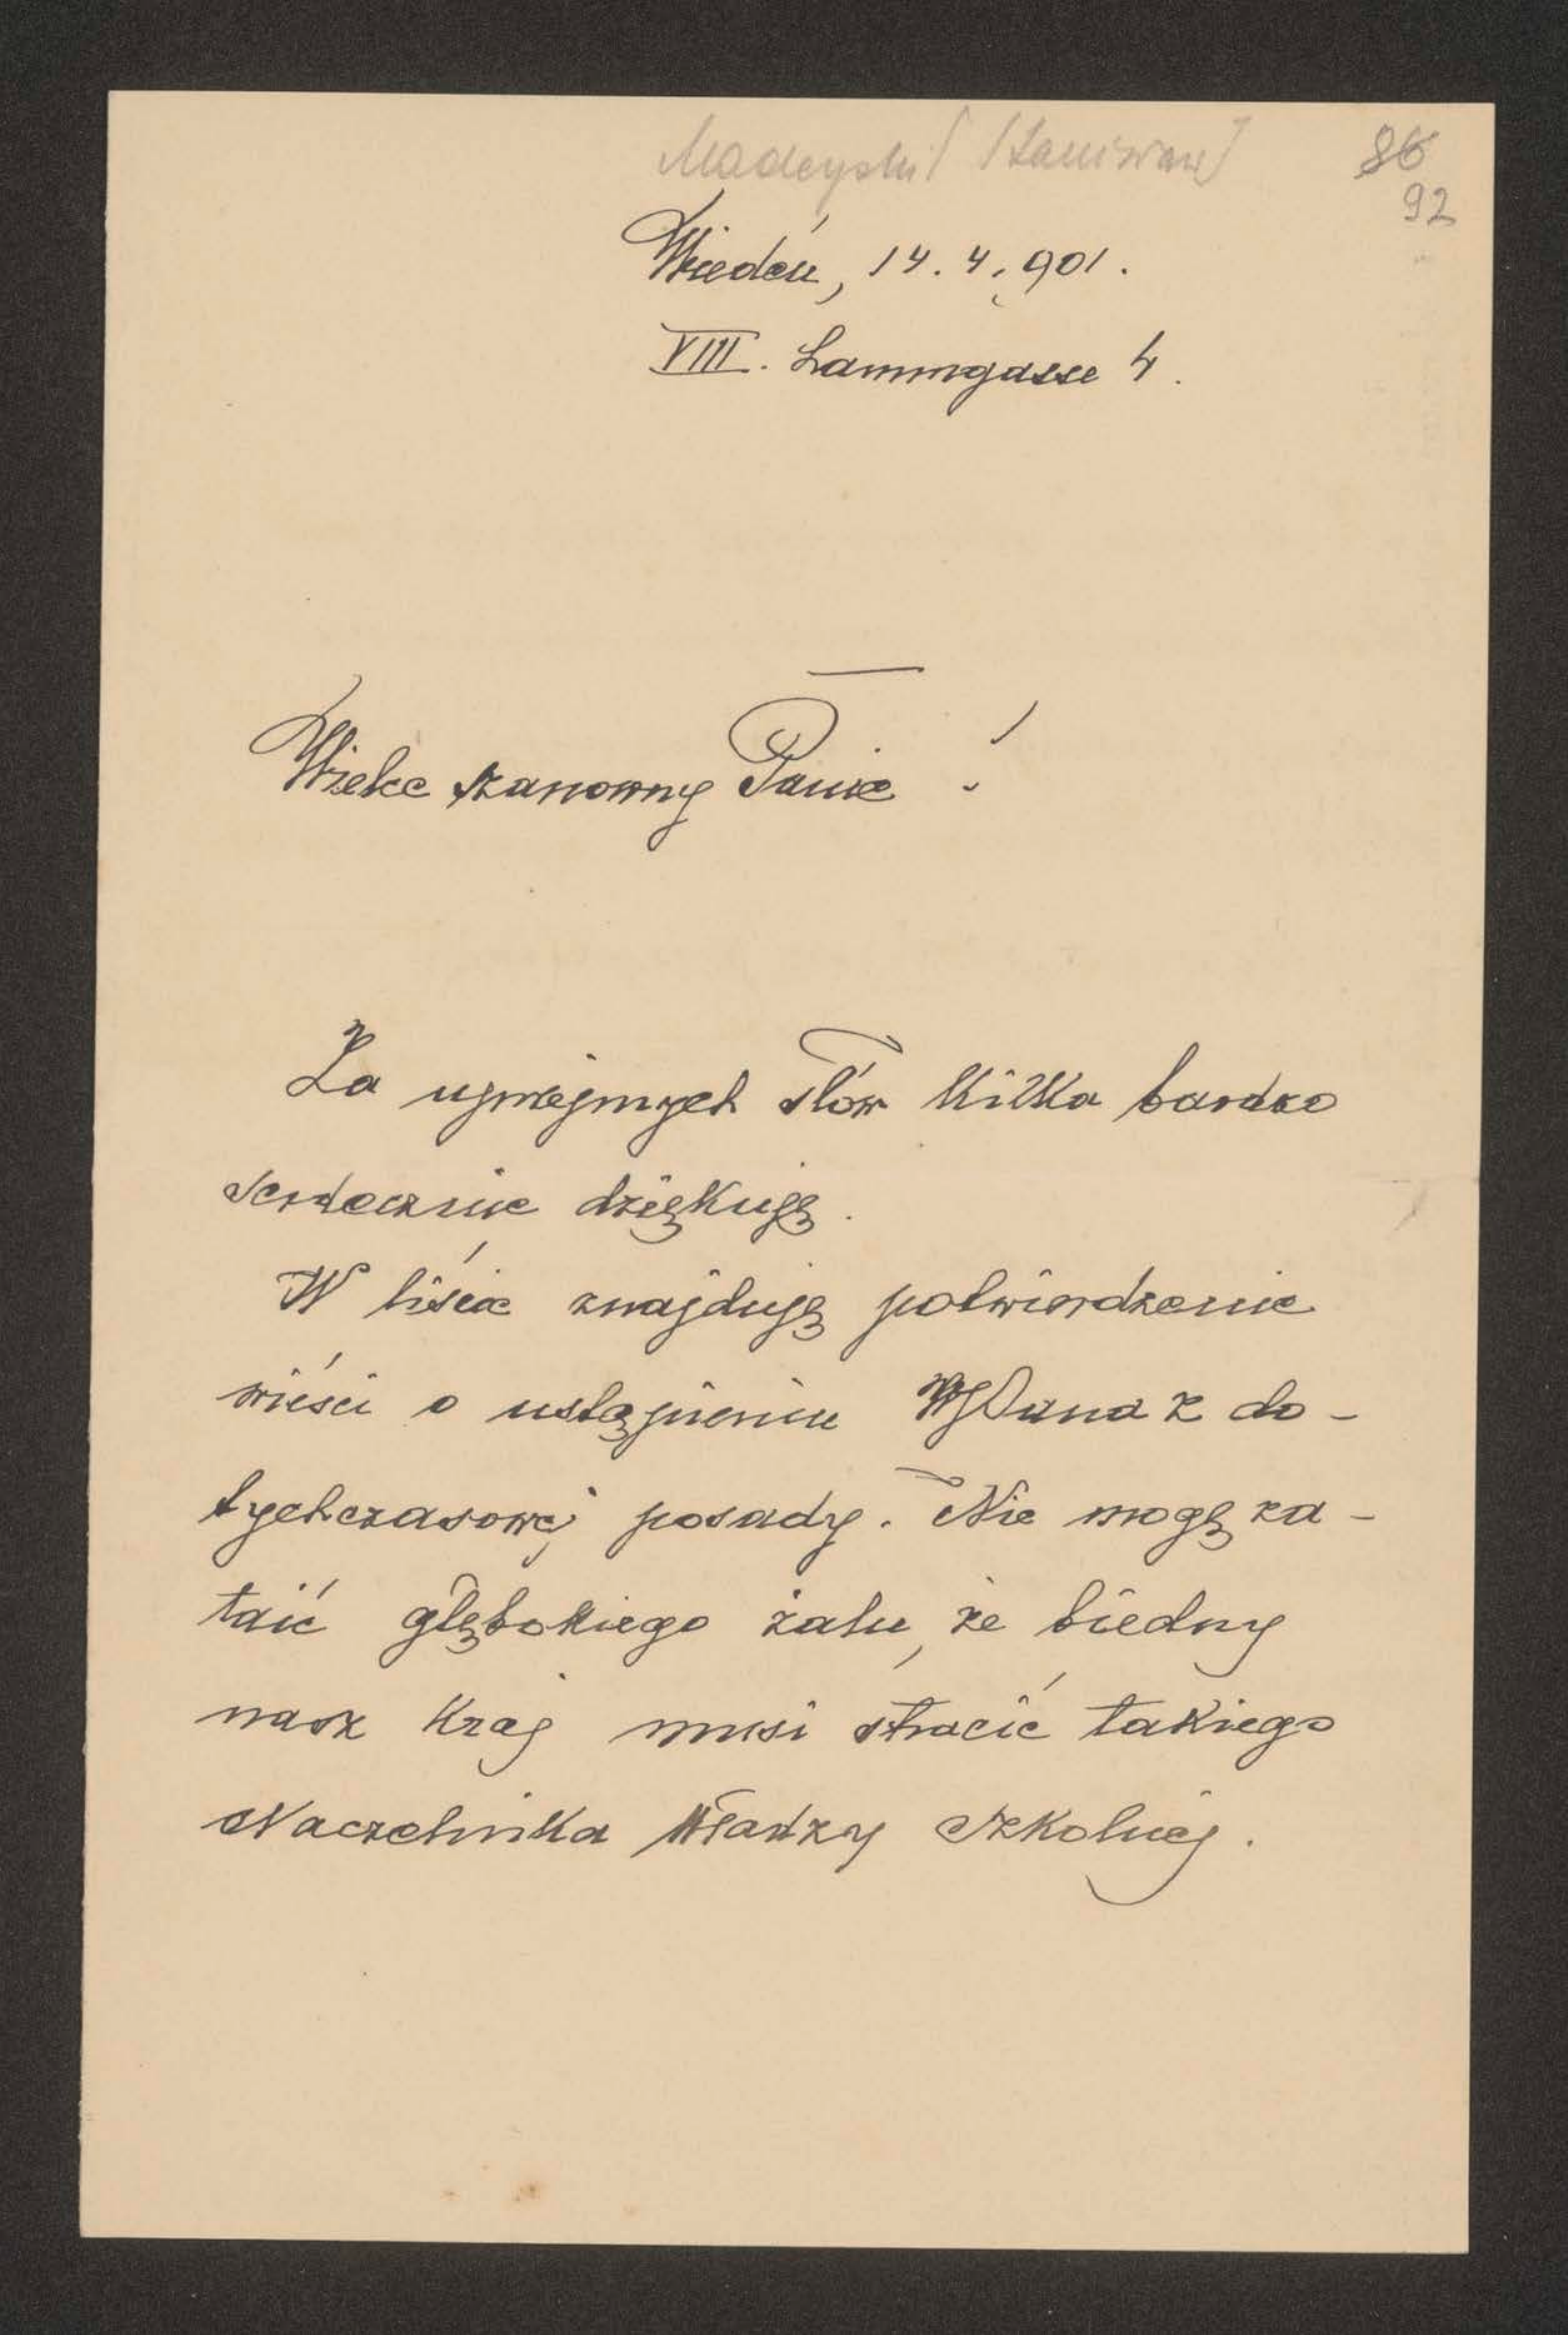 Madeyski [Stanisław]
86
92
Wiedeń, 14. 4. 901.
VIII. Lammgasse 4.
Wielce szanowny Panie!
Za uprzejmych słów kilka bardzo
serdecznie dziękuję.
W liście znajduję potwierdzenie
wieści o ustąpieniu WPana z do-
tychczasowej posady. Nie mogę za-
taić głębokiego żalu, że biedny
nasz kraj musi stracić takiego
Naczelnika Władzy szkolnej.